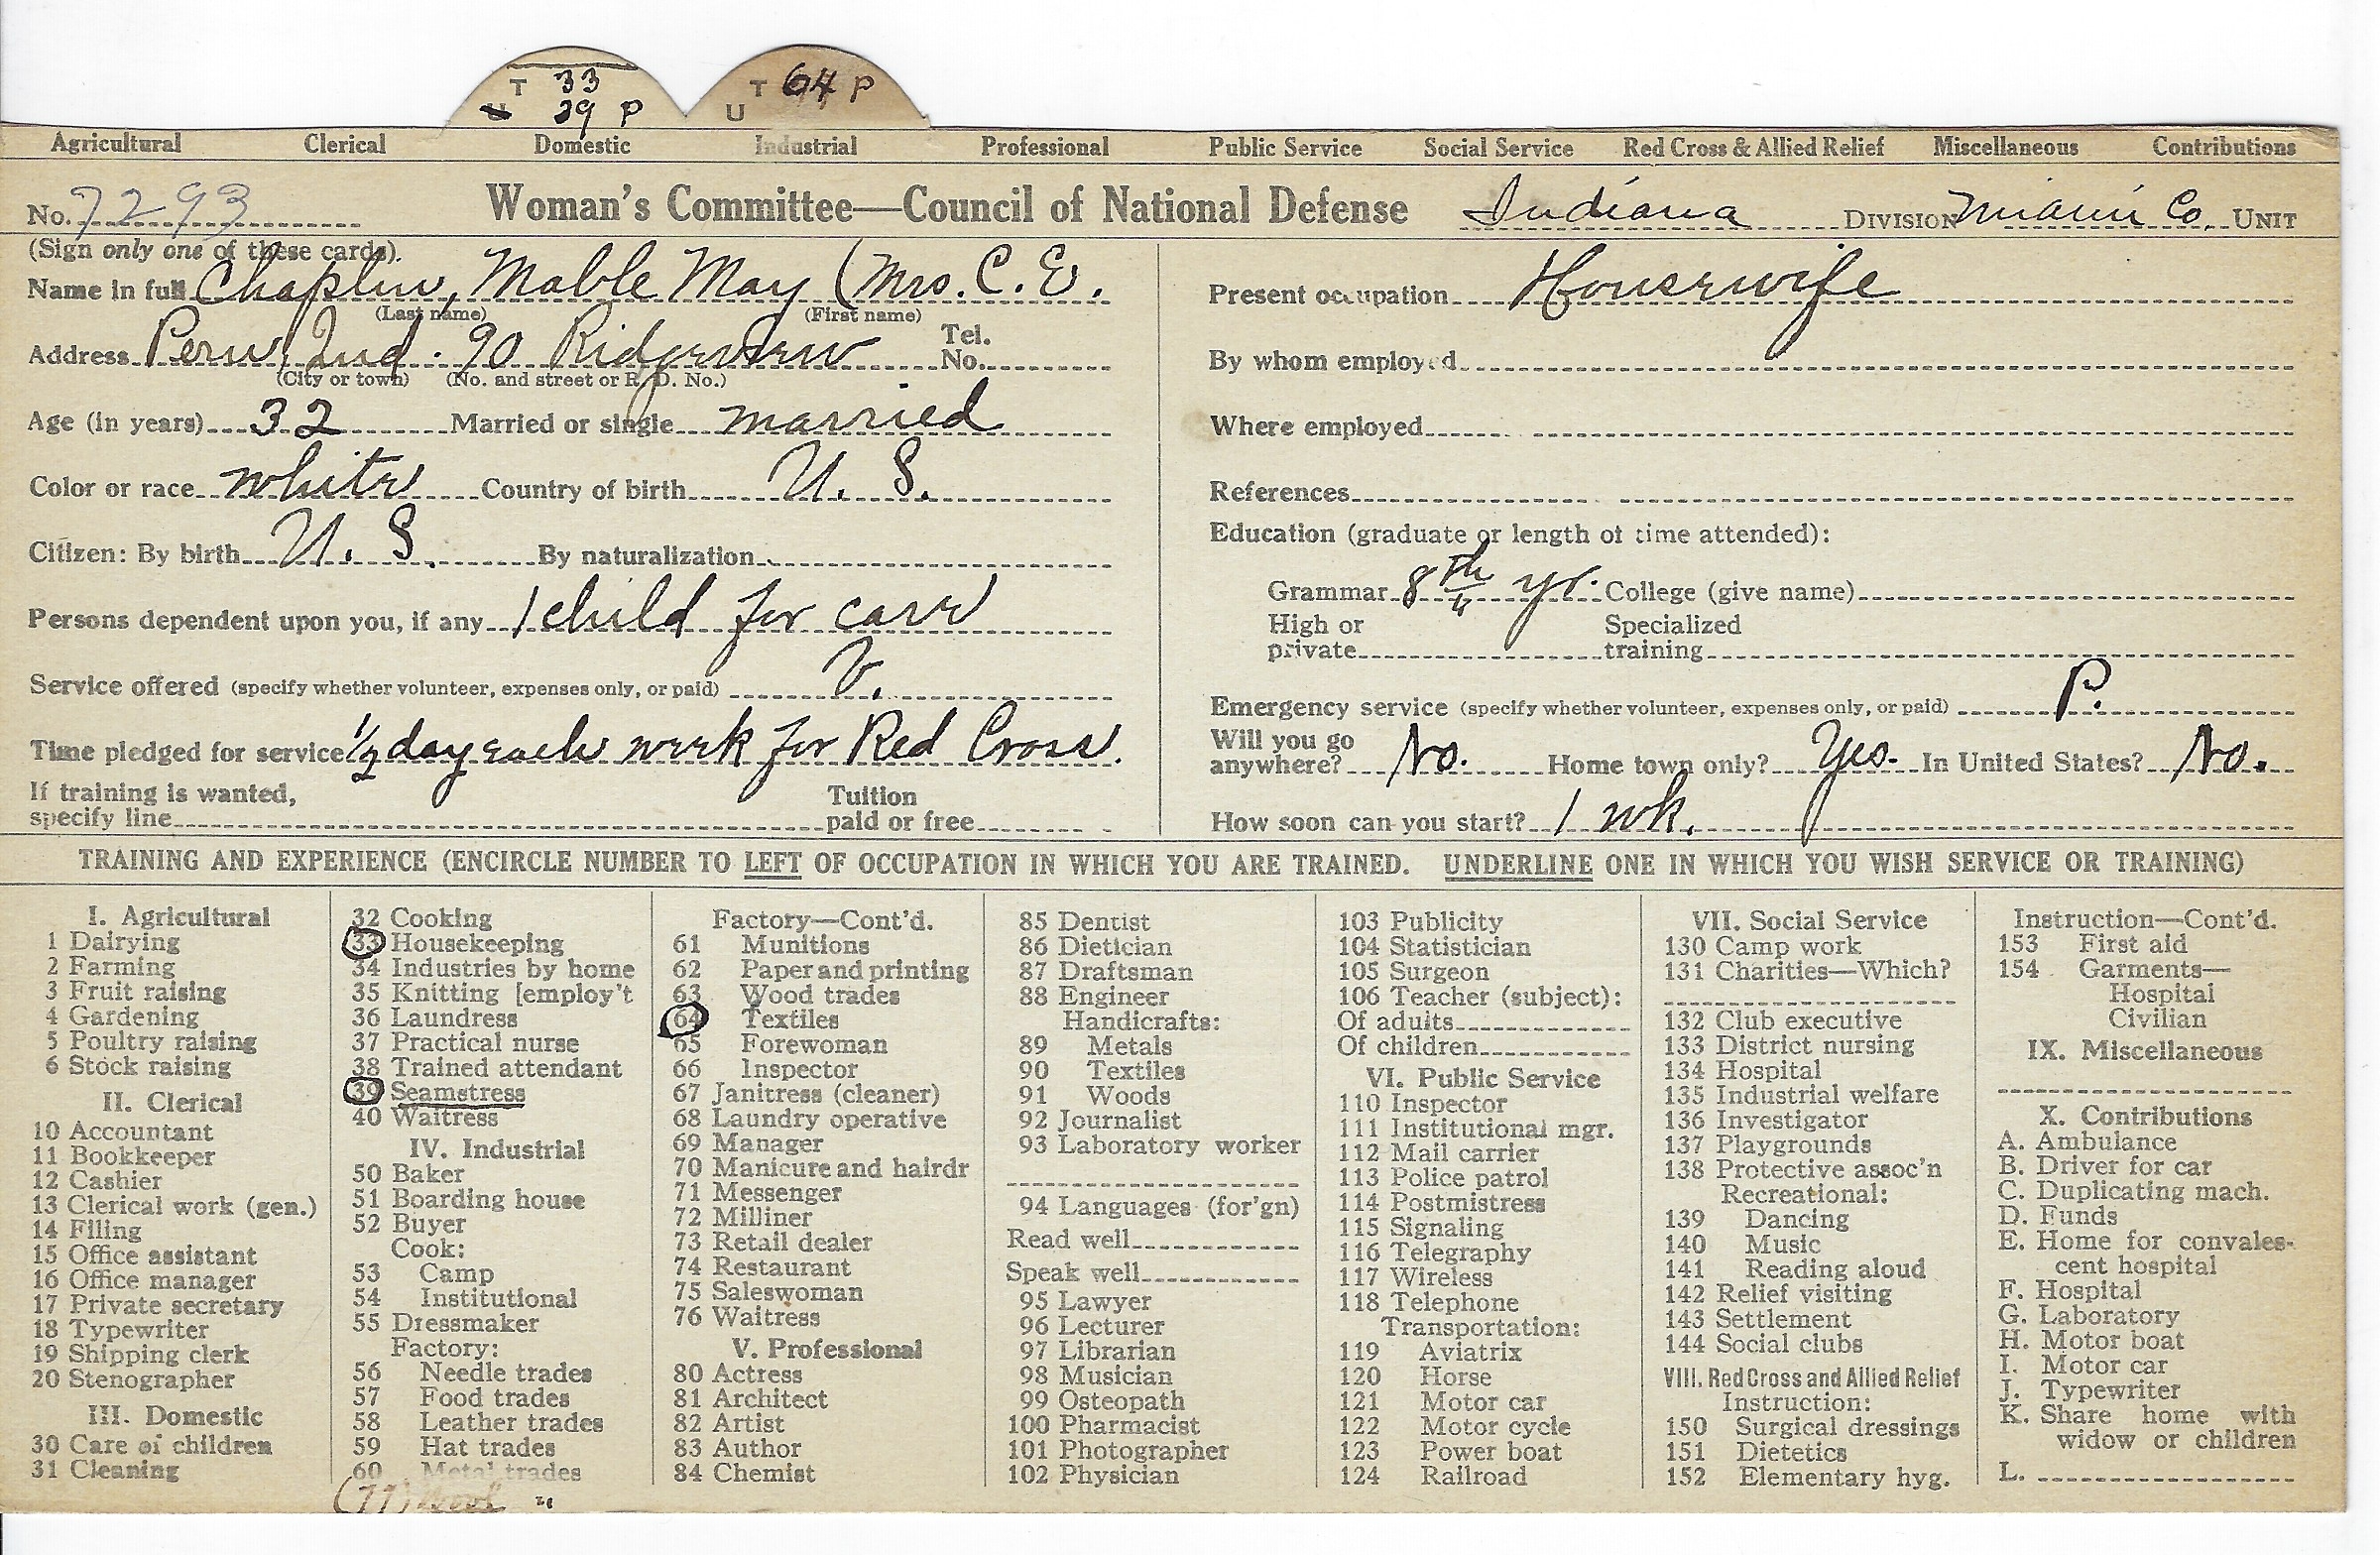 T 33
U 39 P
T 64 P
U
Agricultural Clerical Domestic Industrial Professional Public Service Social Service Red Cross & Allied Relief Miscellaneous Contributions
No. 7293 Woman's Committee—Council of National Defense Indiana DIVISION Miami Co. UNIT
(Sign only one of these cards).
Name in full Chaplin, Mable May (Mrs. C. E.
(Last name) (First name)
Address Peru, Ind. 90 Ridgeview Tel. No.
(City or town) (No. and street or R. D. No.)
Age (in years) 32 Married or single married
Color or race white Country of birth U. S.
Citizen: By birth U. S. By naturalization
Persons dependent upon you, if any 1 child for care
Service offered (specify whether volunteer, expenses only, or paid) V.
Time pledged for service 1/2 day each week for Red Cross.
If training is wanted, specify line Tuition paid or free
Present occupation Housewife
By whom employed
Where employed
References
Education (graduate or length of time attended):
Grammar 8th yr. College (give name)
High or private Specialized training
Emergency service (specify whether volunteer, expenses only, or paid) P.
Will you go anywhere? No. Home town only? Yes. In United States? No.
How soon can you start? 1 wk.
TRAINING AND EXPERIENCE (ENCIRCLE NUMBER TO LEFT OF OCCUPATION IN WHICH YOU ARE TRAINED. UNDERLINE ONE IN WHICH YOU WISH SERVICE OR TRAINING)
I. Agricultural
1 Dairying
2 Farming
3 Fruit raising
4 Gardening
5 Poultry raising
6 Stock raising
II. Clerical
10 Accountant
11 Bookkeeper
12 Cashier
13 Clerical work (gen.)
14 Filing
15 Office assistant
16 Office manager
17 Private secretary
18 Typewriter
19 Shipping clerk
20 Stenographer
III. Domestic
30 Care of children
31 Cleaning
32 Cooking
33 Housekeeping
34 Industries by home
35 Knitting [employ't
36 Laundress
37 Practical nurse
38 Trained attendant
39 Seamstress
40 Waitress
IV. Industrial
50 Baker
51 Boarding house
52 Buyer
Cook:
53 Camp
54 Institutional
55 Dressmaker
Factory:
56 Needle trades
57 Food trades
58 Leather trades
59 Hat trades
60 Metal trades
(77) "
Factory—Cont'd.
61 Munitions
62 Paper and printing
63 Wood trades
64 Textiles
65 Forewoman
66 Inspector
67 Janitress (cleaner)
68 Laundry operative
69 Manager
70 Manicure and hairdr
71 Messenger
72 Milliner
73 Retail dealer
74 Restaurant
75 Saleswoman
76 Waitress
V. Professional
80 Actress
81 Architect
82 Artist
83 Author
84 Chemist
85 Dentist
86 Dietician
87 Draftsman
88 Engineer
Handicrafts:
89 Metals
90 Textiles
91 Woods
92 Journalist
93 Laboratory worker
94 Languages (for'gn)
Read well
Speak well
95 Lawyer
96 Lecturer
97 Librarian
98 Musician
99 Osteopath
100 Pharmacist
101 Photographer
102 Physician
103 Publicity
104 Statistician
105 Surgeon
106 Teacher (subject):
Of adults
Of children
VI. Public Service
110 Inspector
111 Institutional mgr.
112 Mail carrier
113 Police patrol
114 Postmistress
115 Signaling
116 Telegraphy
117 Wireless
118 Telephone
Transportation:
119 Aviatrix
120 Horse
121 Motor car
122 Motor cycle
123 Power boat
124 Railroad
VII. Social Service
130 Camp work
131 Charities—Which?
132 Club executive
133 District nursing
134 Hospital
135 Industrial welfare
136 Investigator
137 Playgrounds
138 Protective assoc'n
Recreational:
139 Dancing
140 Music
141 Reading aloud
142 Relief visiting
143 Settlement
144 Social clubs
VIII. Red Cross and Allied Relief
Instruction:
150 Surgical dressings
151 Dietetics
152 Elementary hyg.
Instruction—Cont'd.
153 First aid
154 Garments—
Hospital
Civilian
IX. Miscellaneous
X. Contributions
A. Ambulance
B. Driver for car
C. Duplicating mach.
D. Funds
E. Home for convales-
cent hospital
F. Hospital
G. Laboratory
H. Motor boat
I. Motor car
J. Typewriter
K. Share home with
widow or children
L.